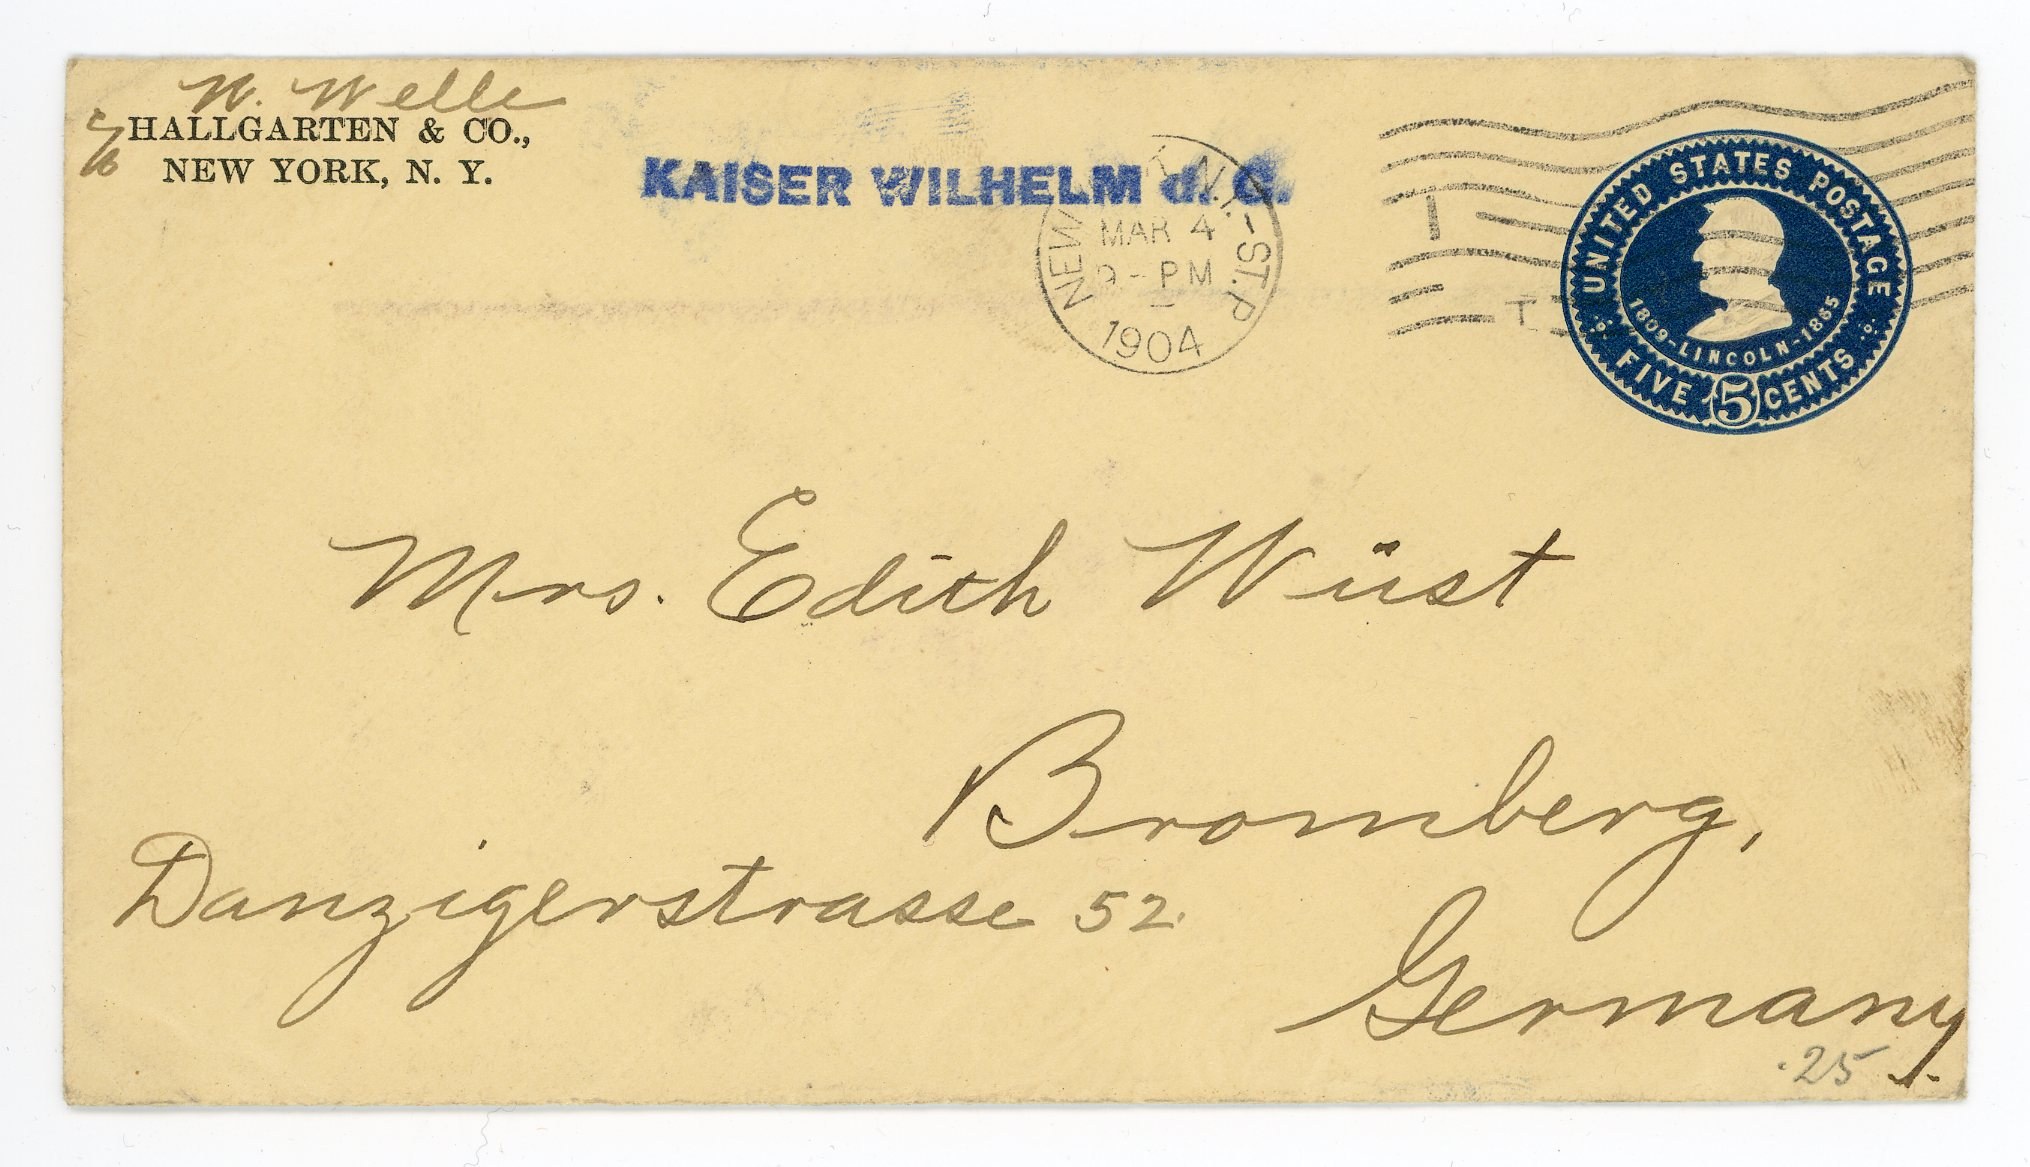 W. Welle
c/o HALLGARTEN & CO.,
NEW YORK, N. Y.
KAISER WILHELM d. G.
NEW N.Y.-ST.P
MAR 4
9-PM
1904
UNITED STATES POSTAGE
1809-LINCOLN-1865
FIVE 5 CENTS
Mrs. Edith Wüst
Bromberg,
Danzigerstrasse 52.
Germany
.25